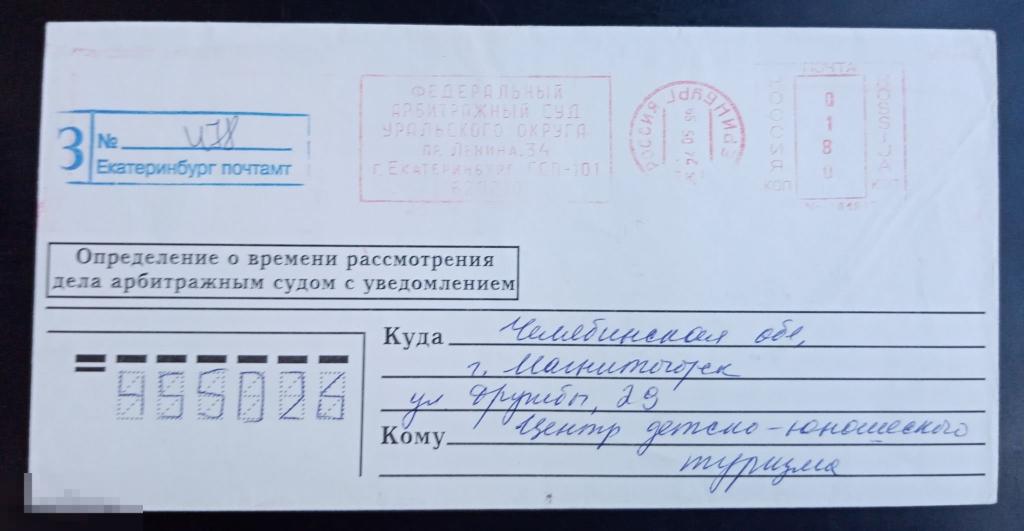 ФЕДЕРАЛЬНЫЙ
АРБИТРАЖНЫЙ СУД
УРАЛЬСКОГО ОКРУГА
ПР. ЛЕНИНА, 34
Г. ЕКАТЕРИНБУРГ, ГСП-101
РОССИЯ
ПОЧТА
РОССИЯ
0180
ROSSIJA
КОП
КОП
З
№ 478
Екатеринбург почтамт
Определение о времени рассмотрения
дела арбитражным судом с уведомлением
Куда Челябинская обл,
г. Магнитогорск
ул Дружбы, 29
Кому Центр детско-юношеского
туризма
455026